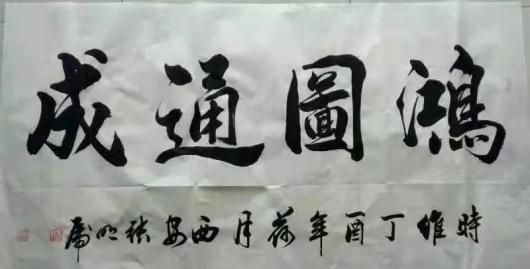 鴻圖通成
時維丁酉年荷月西安張